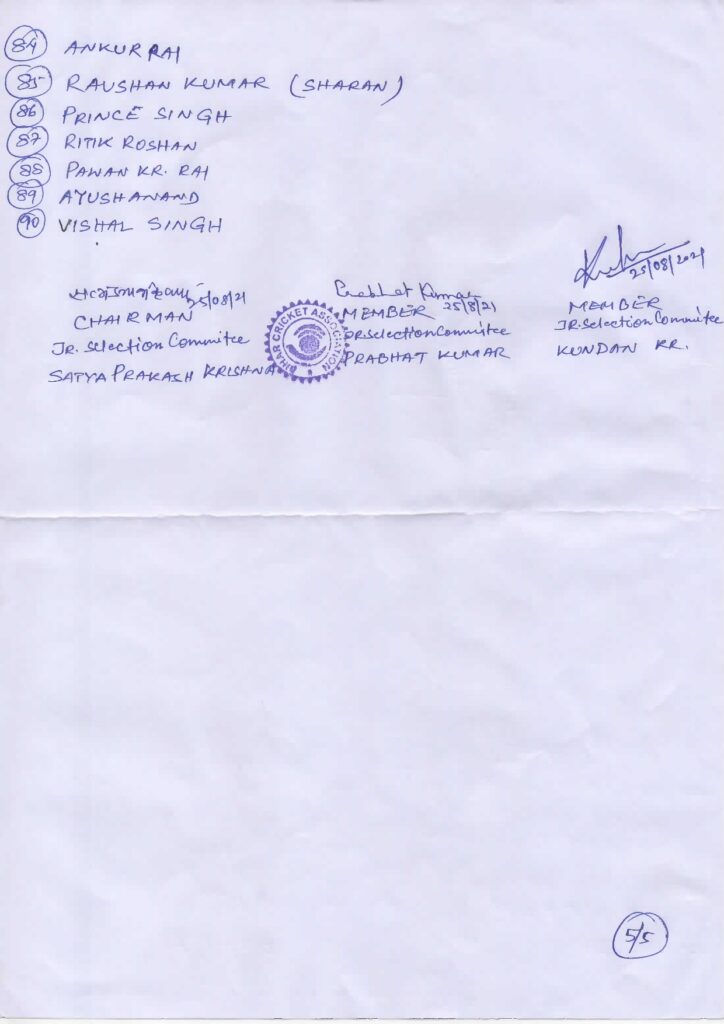 84 ANKUR RAI
85 RAUSHAN KUMAR (SHARAN)
86 PRINCE SINGH
87 RITIK ROSHAN
88 PAWAN KR. RAI
89 AYUSH ANAND
90 VISHAL SINGH
25/08/21
CHAIRMAN
Jr. Selection Commitee
SATYA PRAKASH KRISHNA
BIHAR CRICKET ASSOCIATION
Prabhat Kumar
25/8/21
MEMBER
JR. Selection Commitee
PRABHAT KUMAR
25/08/2021
MEMBER
JR. Selection Commitee
KUNDAN KR.
5/5